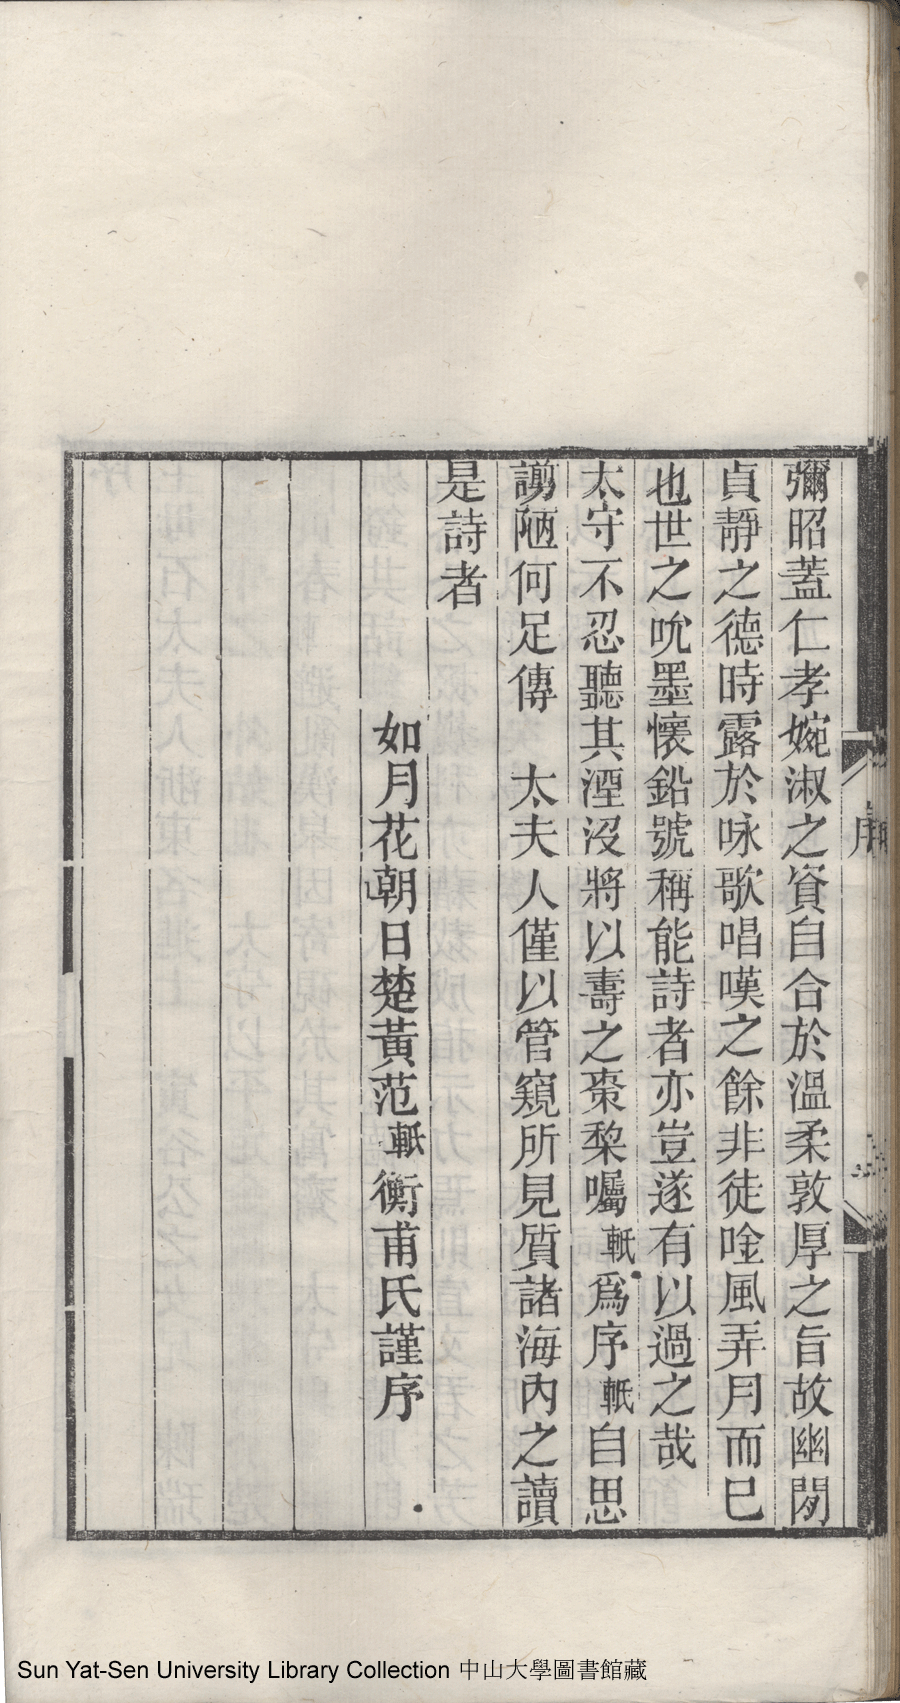 彌昭蓋仁孝婉淑之資自合於溫柔敦厚之旨故幽閒
貞靜之德時露於咏歌唱嘆之餘非徒唫風弄月而已
也世之吮墨懷鉛號稱能詩者亦豈遂有以過之哉
太守不忍聽其湮沒將以壽之棗棃囑軝爲序軝自思
謭陋何足傳　太夫人僅以管窺所見質諸海內之讀
是詩者
如月花朝日楚黃范軝衡甫氏謹序
Sun Yat-Sen University Library Collection 中山大學圖書館藏